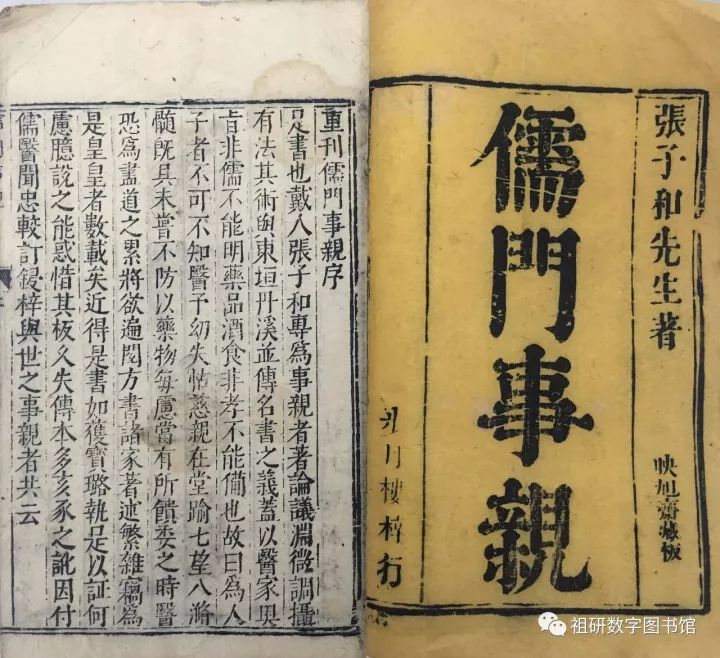 張子和先生著
映旭齋藏板
儒門事親
步月樓梓行
重刊儒門事親序
是書也戴人張子和專爲事親者著論議淵微調攝
有法其術與東垣丹溪並傳名書之義蓋以醫家奧
旨非儒不能明藥品酒食非孝不能備也故曰爲人
子者不可不知醫予幼失怙慈親在堂踰七望八滫
髓旣具未嘗不防以藥物每慮當有所饋委之時醫
恐爲盡道之累將欲遍閱方書諸家著述繁雜竊爲
是皇皇者數載矣近得是書如獲寶璐執是以証何
慮臆說之能惑惜其板久失傳本多亥豕之訛因付
儒醫聞忠較訂鋟梓與世之事親者共云
祖研数字图书馆